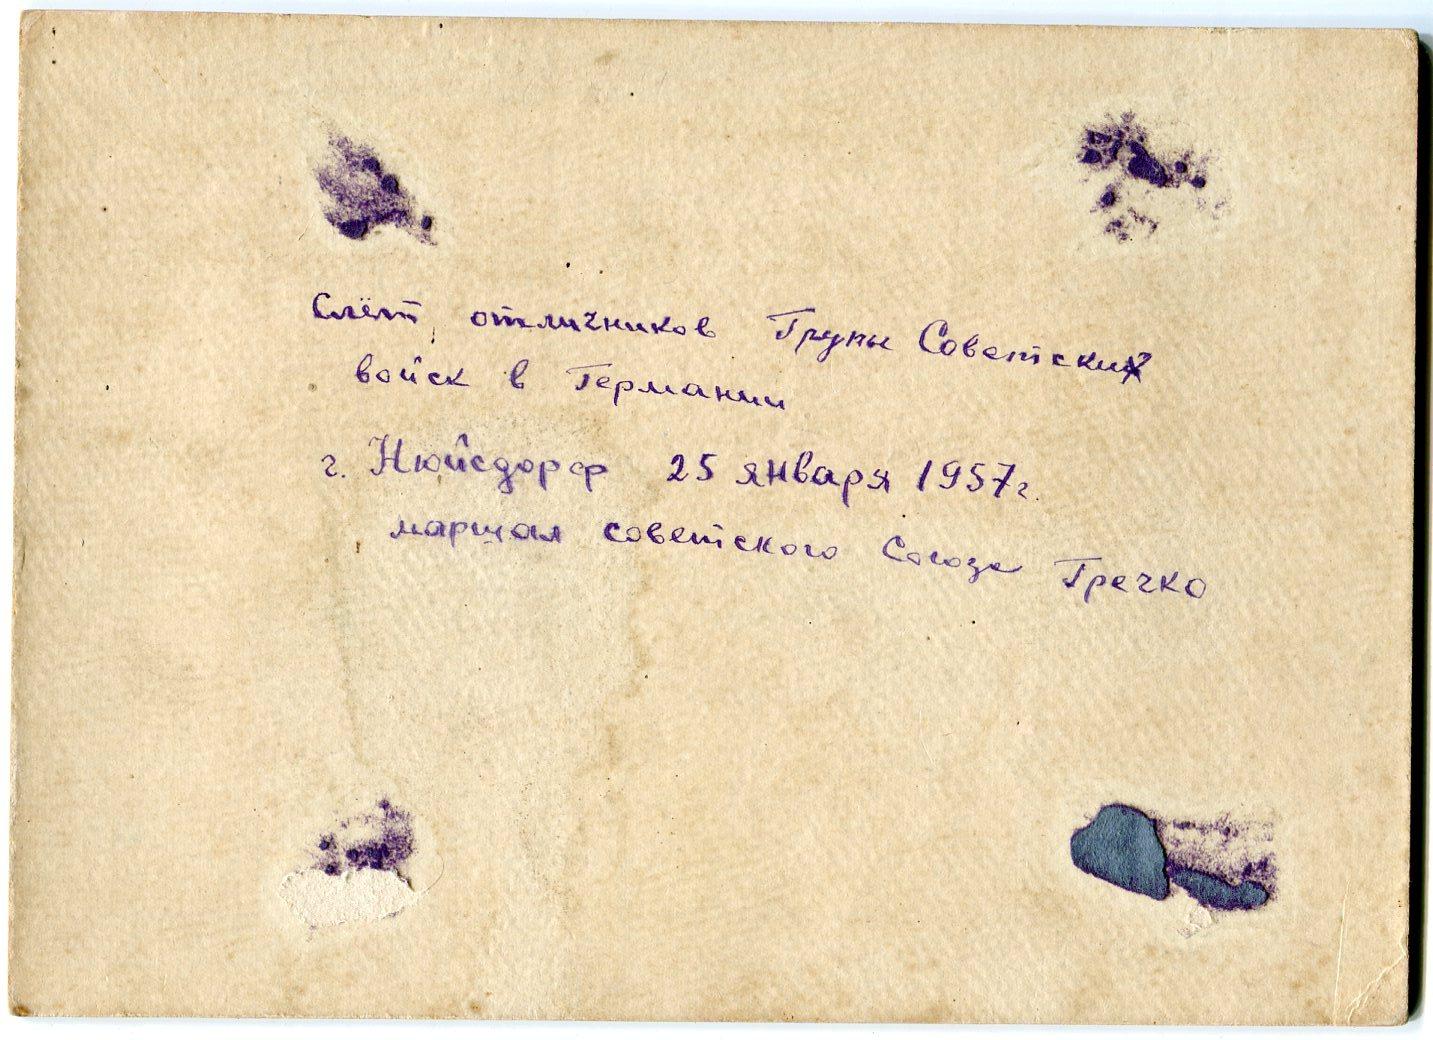 Слёт отличников Групы Советских
войск в Германии
г. Нюйсдорф 25 января 1957г.
маршал советского Союза Гречко